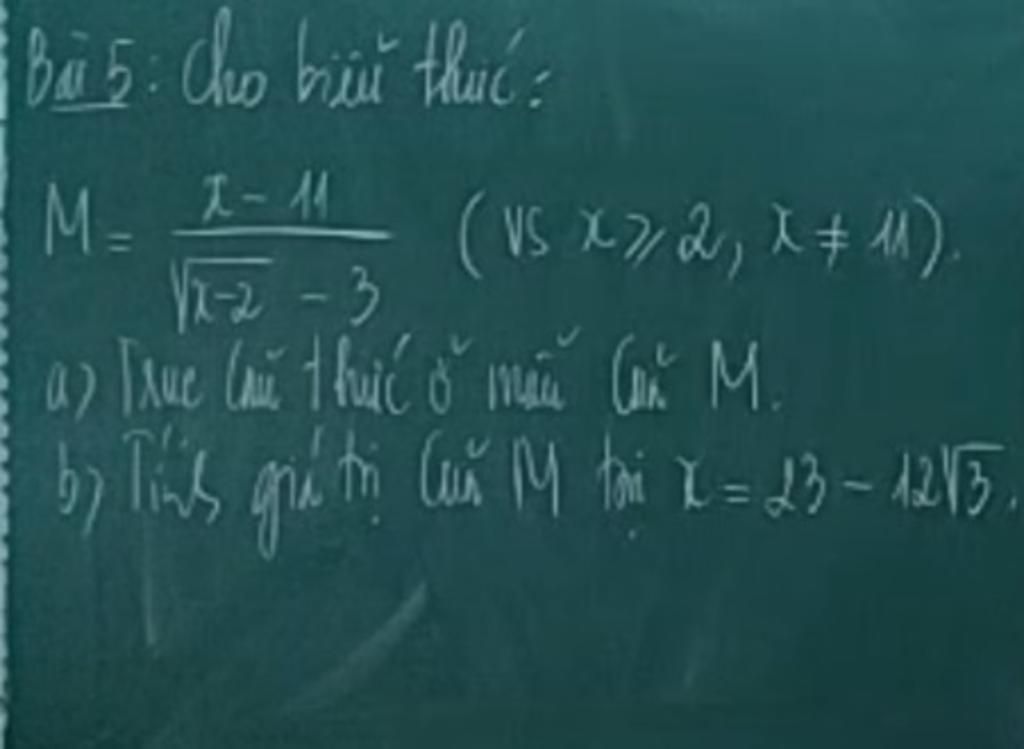 Bài 5: Cho biểu thức:
M = \frac{x - 11}{\sqrt{x-2} - 3} (vs x ⩾ 2, x ≠ 11).
a) Trục căn thức ở mẫu của M.
b) Tính giá trị của M tại x = 23 - 12√3.